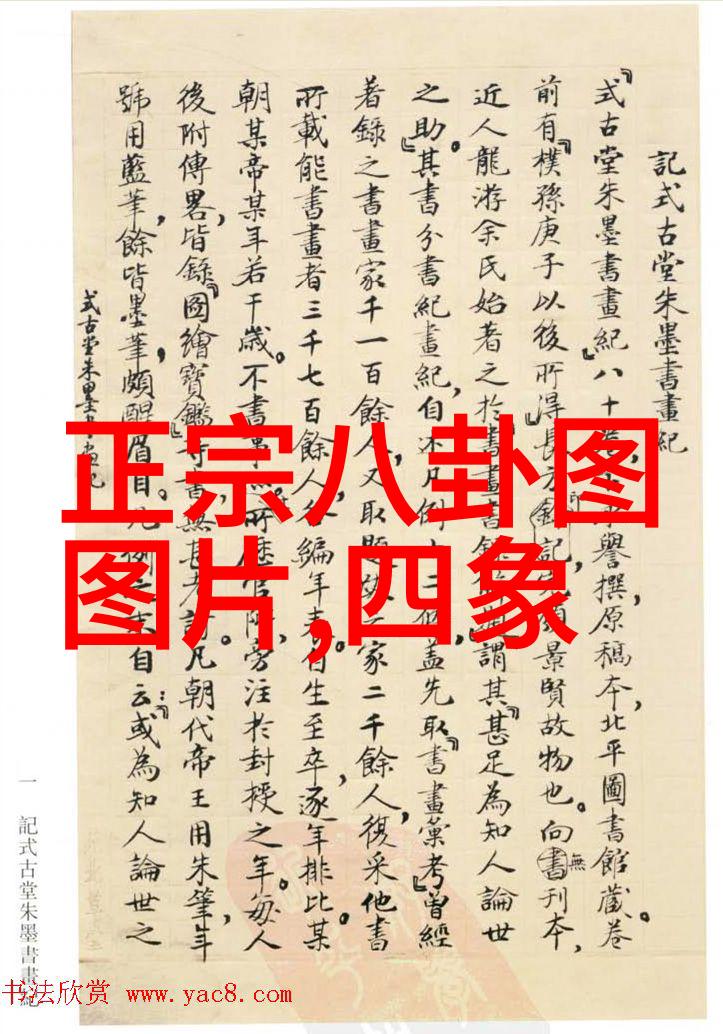 記式古堂朱墨書畫紀
『式古堂朱墨書畫紀』八十卷,譽撰,原稿本,北平圖書館藏。卷
前有『樸孫庚子以後所得』長方記,景賢故物也。向無書刊本,
近人龍游余氏始著之於『書畫書錄謂其『甚足為知人論世
之助。』其書分書紀畫紀,自述凡例十二蓋先取『書畫彙考』曾經
著錄之書畫家千一百餘人,又取題家二千餘人,復采他書
所載能書畫者三千七百餘人,各編年表。自生至卒,逐年排比。某
朝某帝某年若干歲。不書所歷官階,旁注於封授之年。每人
後附傳畧,皆錄『圖繪寶鑑』等書,無甚考訂。凡朝代帝王用朱筆,年
號用藍筆,餘皆墨筆,頗醒眉目。凡例之末自云:『或為知人論世之
式古堂朱墨書畫紀
一 記式古堂朱墨書畫紀
正宗八卦图
图片,四象
书法欣赏 www.yac8.com